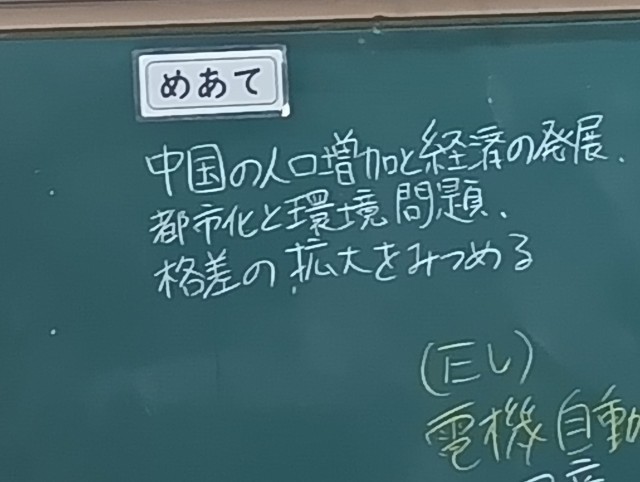 めあて
中国の人口増加と経済の発展、
都市化と環境問題、
格差の拡大をみつめる
電機自動